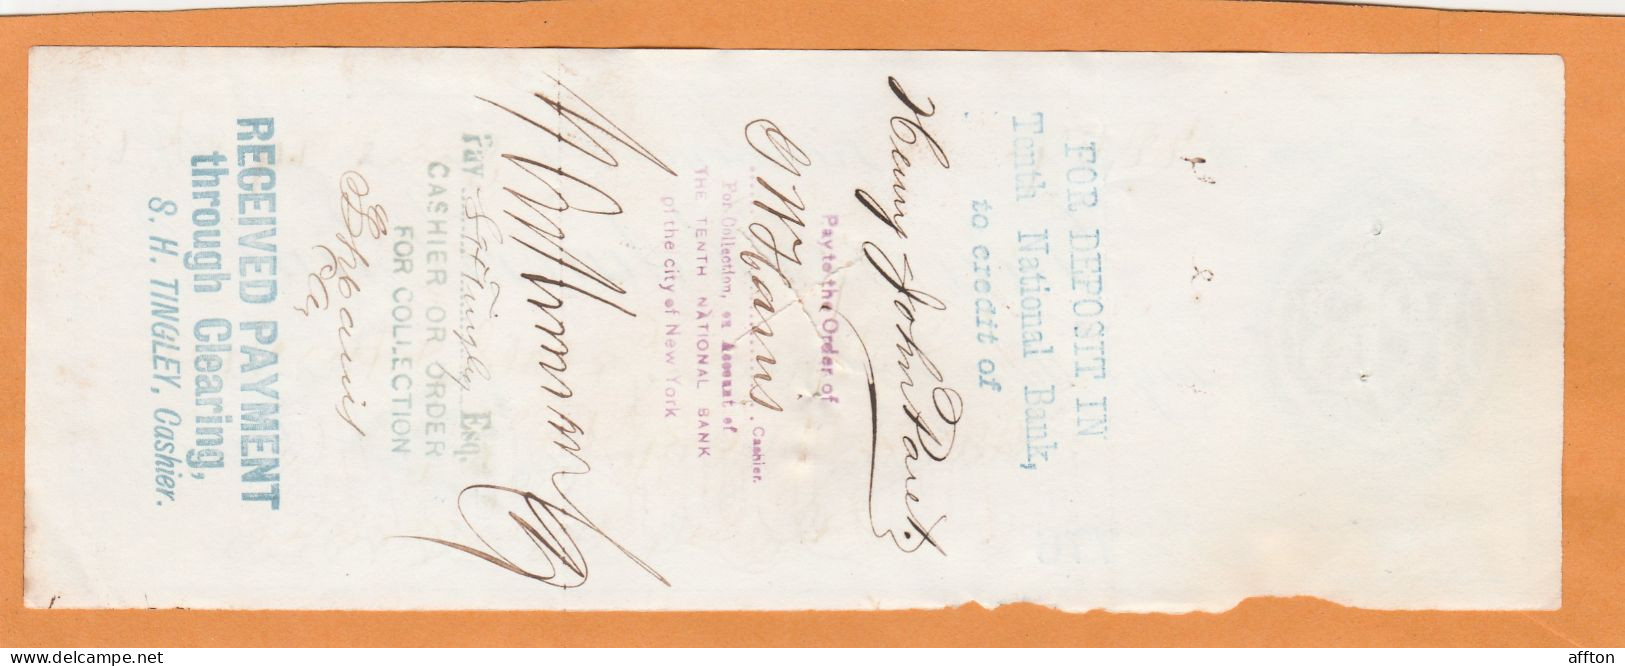 FOR DEPOSIT IN
Tenth National Bank,
to credit of
Henry John Paret.
Pay to the Order of
Cashier.
For Collection, on Account of
THE TENTH NATIONAL BANK
of the city of New York
Pay S. H. Tingley, Esq.
CASHIER OR ORDER
FOR COLLECTION
RECEIVED PAYMENT
through Clearing,
S. H. TINGLEY, Cashier.
affton